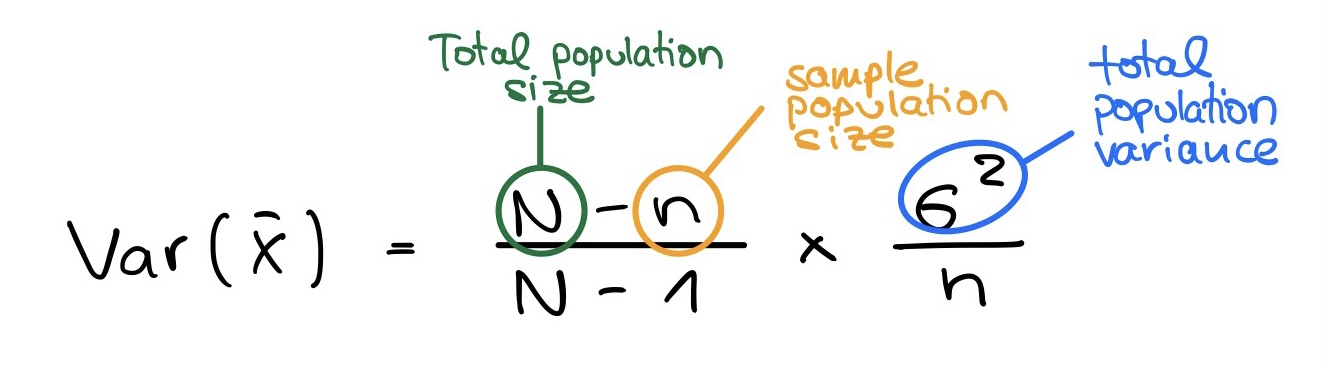 Total population
size
sample
population
size
total
population
variance
Var(x̄) = N - n / N - 1 × σ² / n